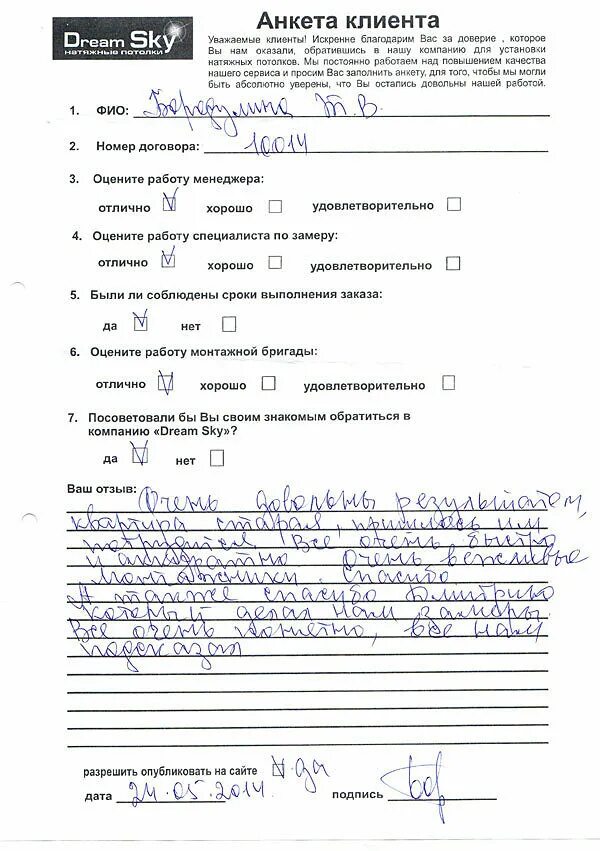 Dream Sky
НАТЯЖНЫЕ ПОТОЛКИ
Анкета клиента
Уважаемые клиенты! Искренне благодарим Вас за доверие , которое
Вы нам оказали, обратившись в нашу компанию для установки
натяжных потолков. Мы постоянно работаем над повышением качества
нашего сервиса и просим Вас заполнить анкету, для того, чтобы мы могли
быть абсолютно уверены, что Вы остались довольны нашей работой.
1. ФИО: Бородулина Т.В.
2. Номер договора: 10014
3. Оцените работу менеджера:
отлично V хорошо удовлетворительно
4. Оцените работу специалиста по замеру:
отлично V хорошо удовлетворительно
5. Были ли соблюдены сроки выполнения заказа:
да V нет
6. Оцените работу монтажной бригады:
отлично V хорошо удовлетворительно
7. Посоветовали бы Вы своим знакомым обратиться в
компанию «Dream Sky»?
да V нет
Ваш отзыв: Очень довольны результатом,
квартира старая, пришлось им
потрудится. Все очень быстро
и аккуратно Очень вежливые
монтажники. Спасибо
А также спасибо Дмитрию
который делал нам замеры.
Все очень понятно, все нам
подсказал
разрешить опубликовать на сайте V да
дата 24.05.2014 подпись Бор